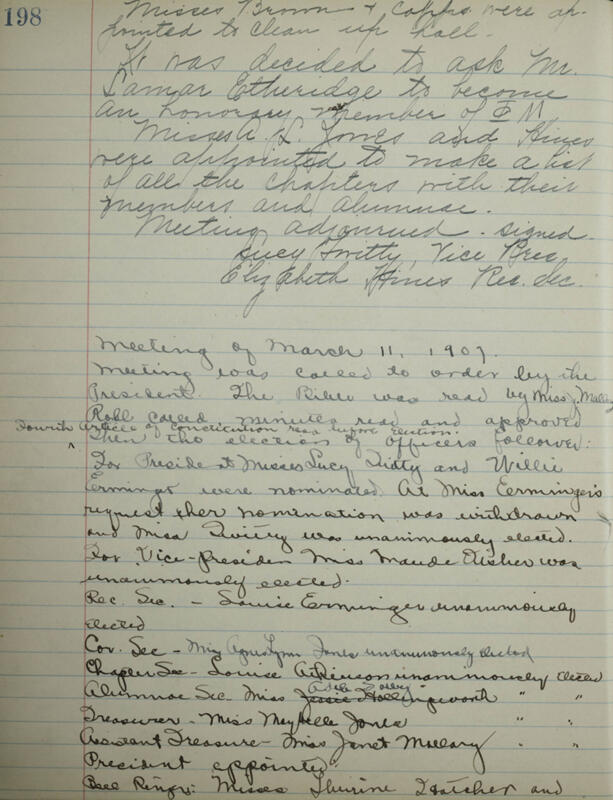 198
Misses Brown + Capps were ap-
pointed to clean up hall.
It was decided to ask Mr.
Lamar Etheridge to become
an honorary member of Φ M
Misses A. L. Jones and Hines
were appointed to make a list
of all the chapters with their
members and alumnae.
Meeting adjourned. signed
Lucy Twitty, Vice Pres
Elizabeth Hines Rec. Sec.
Meeting of March 11, 1907.
Meeting was called to order by the
President. The Bible was read by Miss J. Mallary
Roll called minutes read and approved
Fourth Article of Constitution read before election.
Then the election of officers followed:
For President Misses Lucy and Willie
Erminger were nominated. At Miss Eerminger's
request her nomination was withdrawn
and Miss was unanimously elected.
For Vice-Presiden Miss Maude was
unanimously elected.
Rec. Sec. - Louise Erminger unanimously
elected
Cor. Sec - Miss Agnes Lynn Jones unanimously elected
Chapter Sec - Louise unanimously elected
Adele
Alumnae Sec - Miss Jessie Hollingsworth " "
Treasurer - Miss Maybelle Jones " "
Assistant Treasure - Miss Janet Mallary " "
President appointed:
Bell Ringers: Misses and